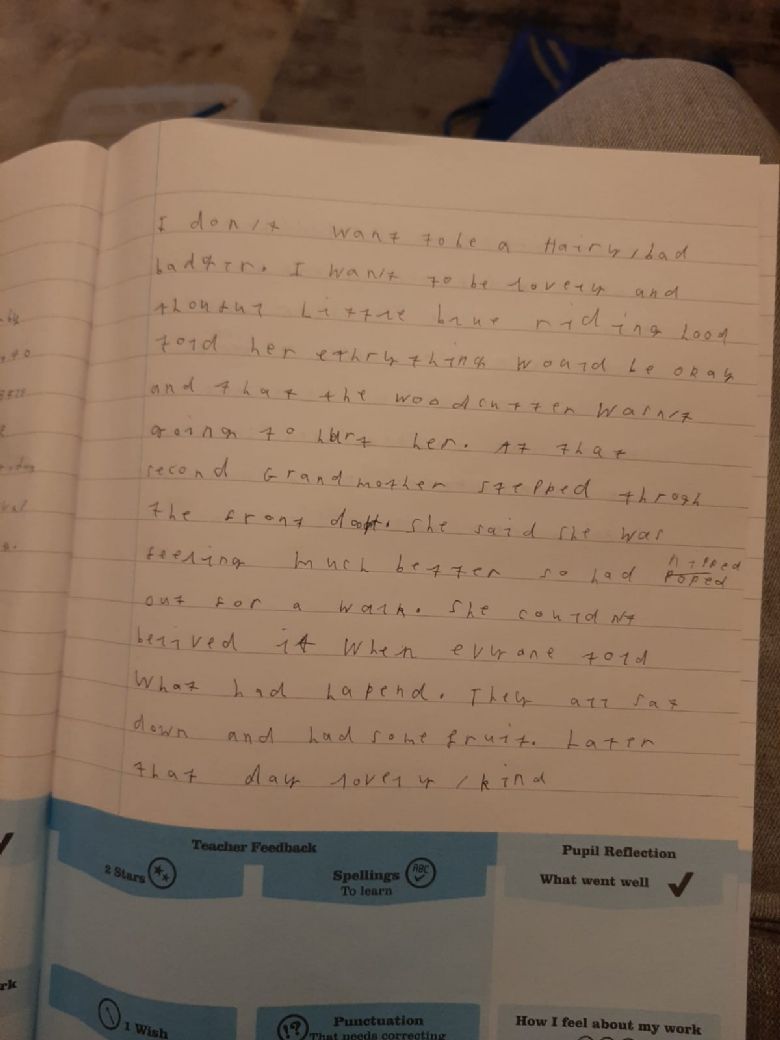 I don't want tobe a Hairy, bad
badger. I want to be lovely and
Little blue riding hood
told her everything would be okay
and that the woodcutter wasn't
going to hurt her. At that
second Grandmother stepped throgh
the front door. She said she was
feeling much better so had nipped
poped
out for a walk. She could Nt
belived it when evryone told
What had hapend. They all sat
down and had some fruit. Later
that day lovely, kind
Teacher Feedback
Pupil Reflection
2 Stars
Spellings
ABC
To learn
What went well
1 Wish
!?
Punctuation
That needs correcting
How I feel about my work
rk